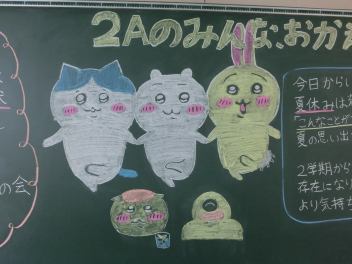 2Aのみんな、おか
今日から
夏休みは
「こんなことが
夏の思い出
2学期から
存在にな
より気持ち
の会